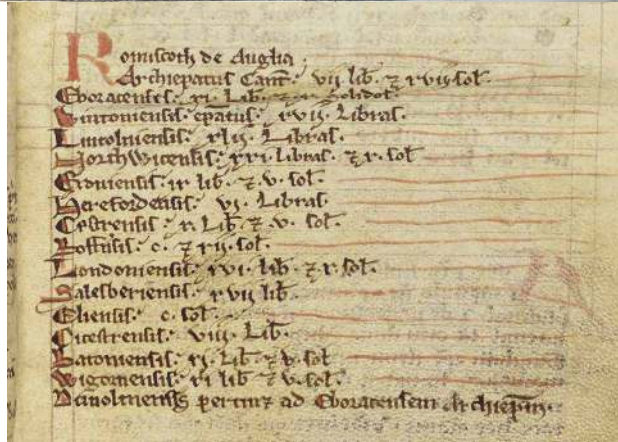 Romscoth de Anglia.
Archiepatus Cant. vii. lib. ⁊ xviii. sol.
Eboracenses. xi. Lib. ⁊ x. solidos.
Wintoniensis. epatus. xvii. Libras.
Lincolniensis. xlii. Libras.
Northwicensis. xxi. libras. ⁊ x. sol.
ix. lib. ⁊ v. sol.
Herefordensis. vi. Libras.
Cestrensis. x. Lib. ⁊ v. sol.
Roffensis. c. ⁊ xii. sol.
Londoniensis. xvi. lib. ⁊ x. sol.
Salesberiensis. xvii. lib.
Eliensis. c. sol.
Cicestrensis. viii. Lib.
Batoniensis. xi. Lib. ⁊ v. sol
Wigorniensis. xi lib ⁊ v. sol.
pertinet ad Eboracensem Archiepm.